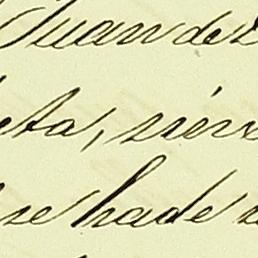 Juan de
eta, sirv
se ha de